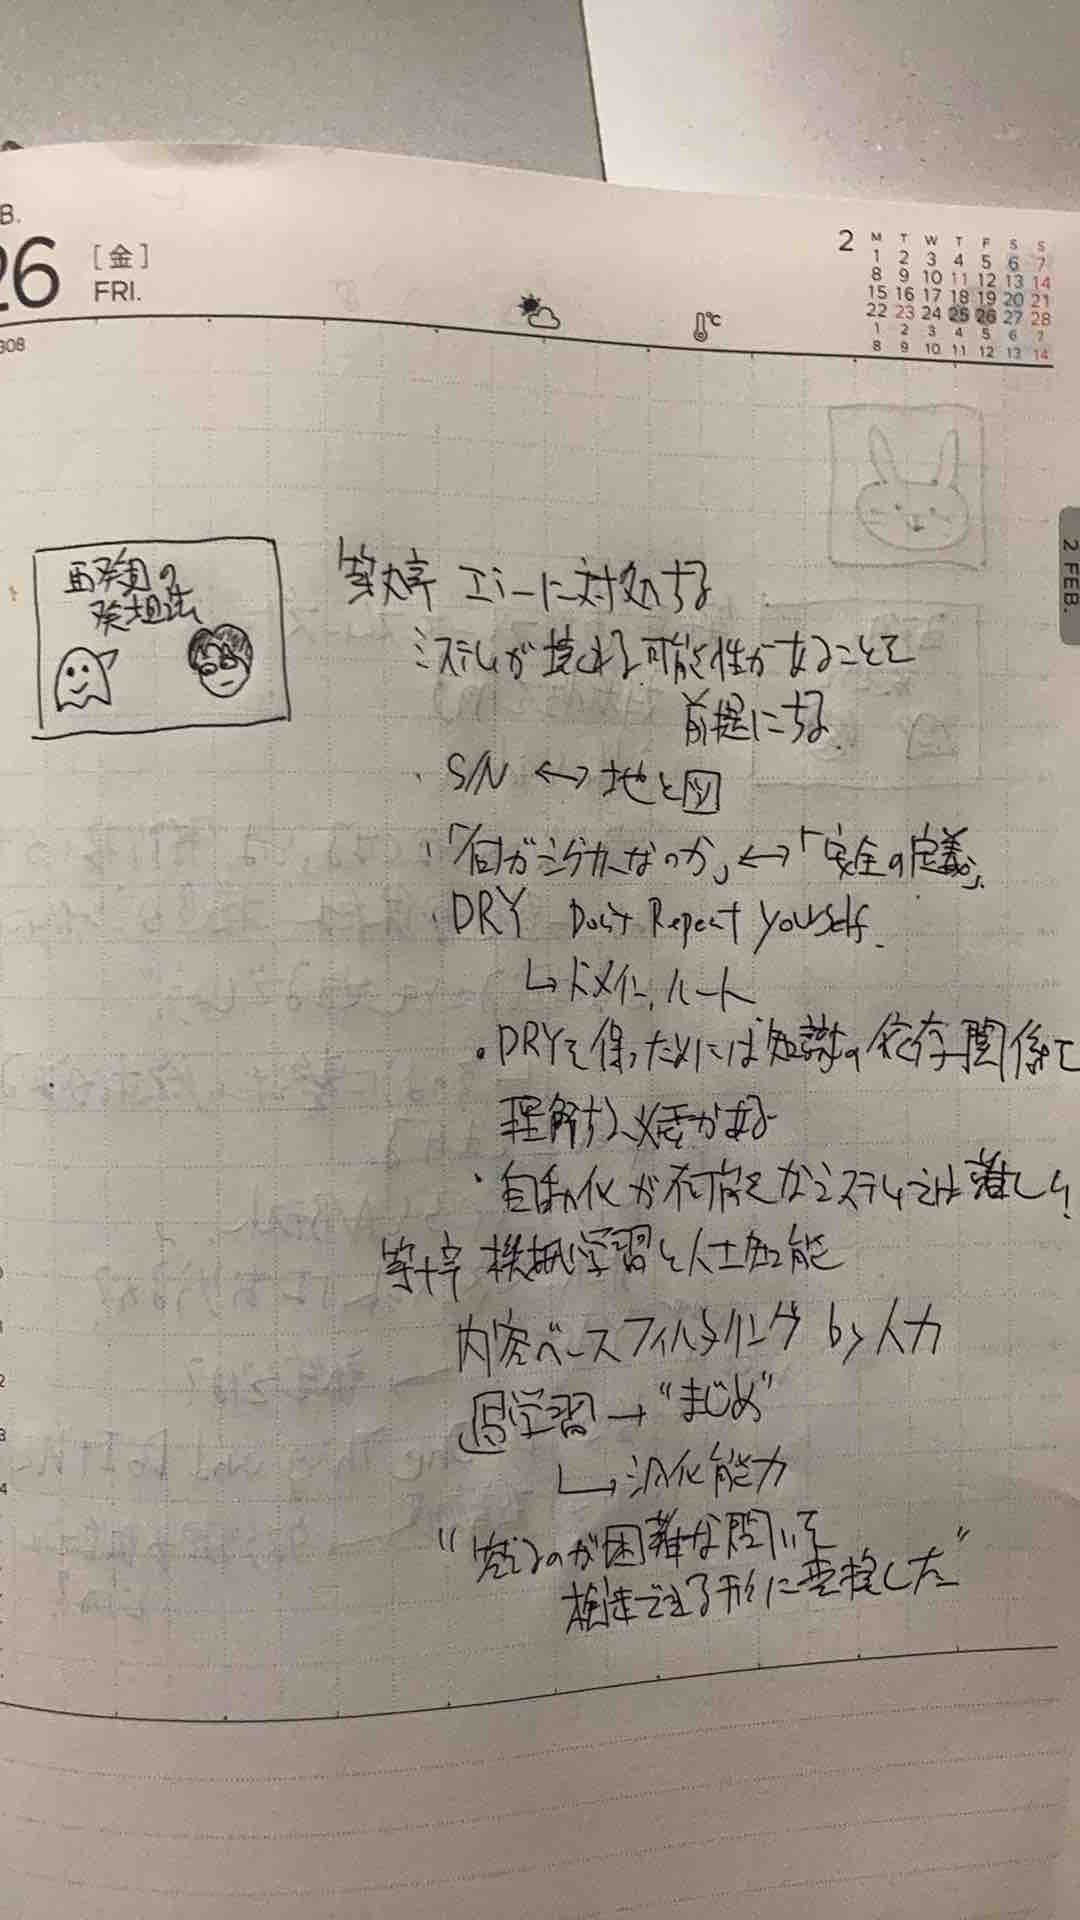 B.
26
[金]
FRI.
308
℃
2
M T W T F S S
1 2 3 4 5 6 7
8 9 10 11 12 13 14
15 16 17 18 19 20 21
22 23 24 25 26 27 28
1 2 3 4 5 6 7
8 9 10 11 12 13 14
2 FEB.
再発見の
発想法
第九章 エラーに対処する
システムが壊れる可能性があることを
前提にする
・S/N ↔ 地と図
・「何がシグナルなのか」↔「安全の定義」
・DRY Don't Repeat Yourself.
↳ドメイン、ルート
・DRYを保つためには知識の依存関係を
理解する必要がある
・自動化が不可能なシステムでは難しい!
第十章 機械学習と人工知能
内容ベースフィルタリング by 人力
過学習→"まじめ"
↳汎化能力
"答えるのが困難な問いを
検証できる形に変換した"